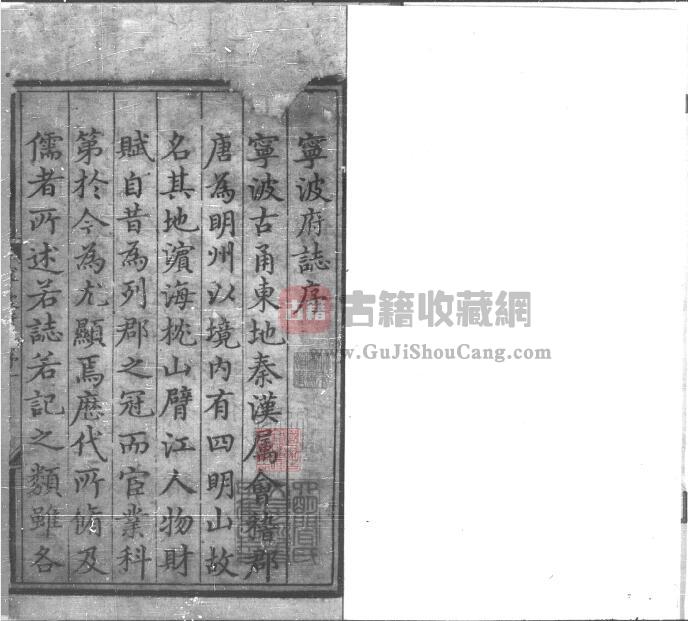 寧波府誌序
寧波古甬東地秦漢属會稽郡
唐為明州以境内有四明山故
名其地濵海枕山臂江人物財
賦自昔為列郡之冠而宦業科
第於今為尤顯焉歷代所脩及
儒者所述若誌若記之類雖各
古籍
古籍收藏網
www.GuJiShouCang.com